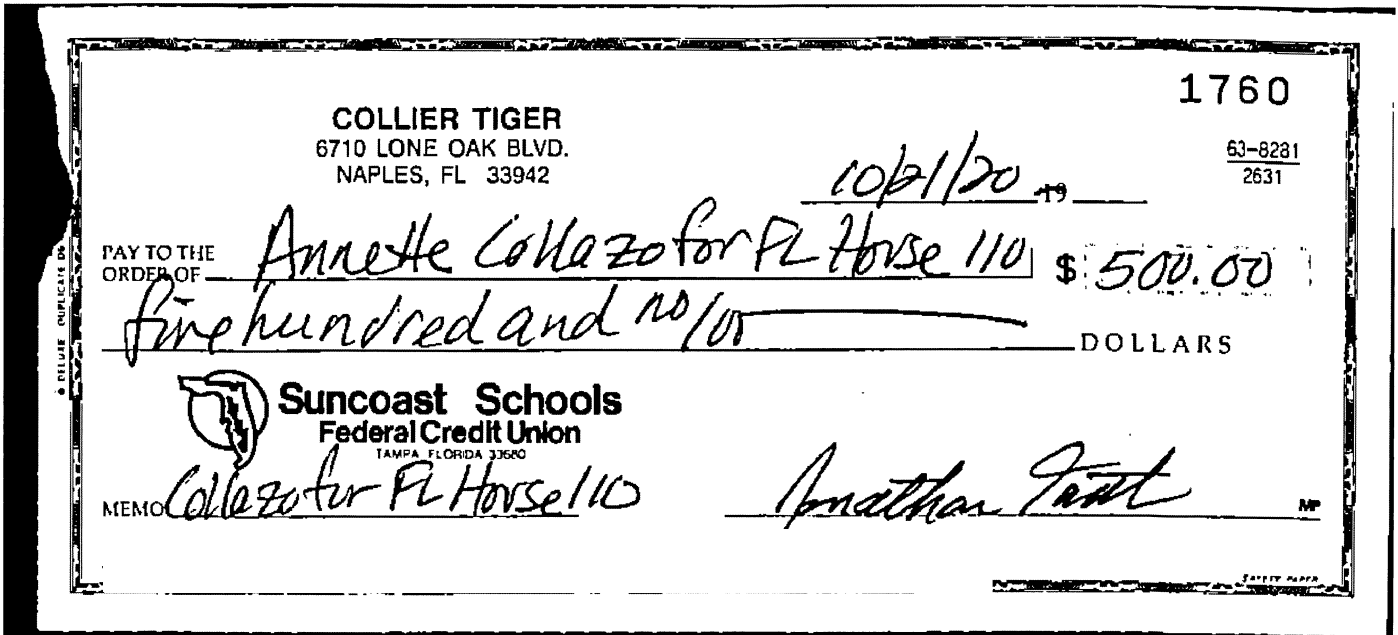 1760
COLLIER TIGER
6710 LONE OAK BLVD.
NAPLES, FL 33942
63-8281
2631
10/21/20 19
PAY TO THE
ORDER OF Annette Collazo for FL House 110 $ 500.00
five hundred and no/00 DOLLARS
Suncoast Schools
Federal Credit Union
TAMPA FLORIDA 33680
MEMO Collazo for FL House 110 Jonathan MP
SAFETY PAPER
DELUXE DUPLICATE